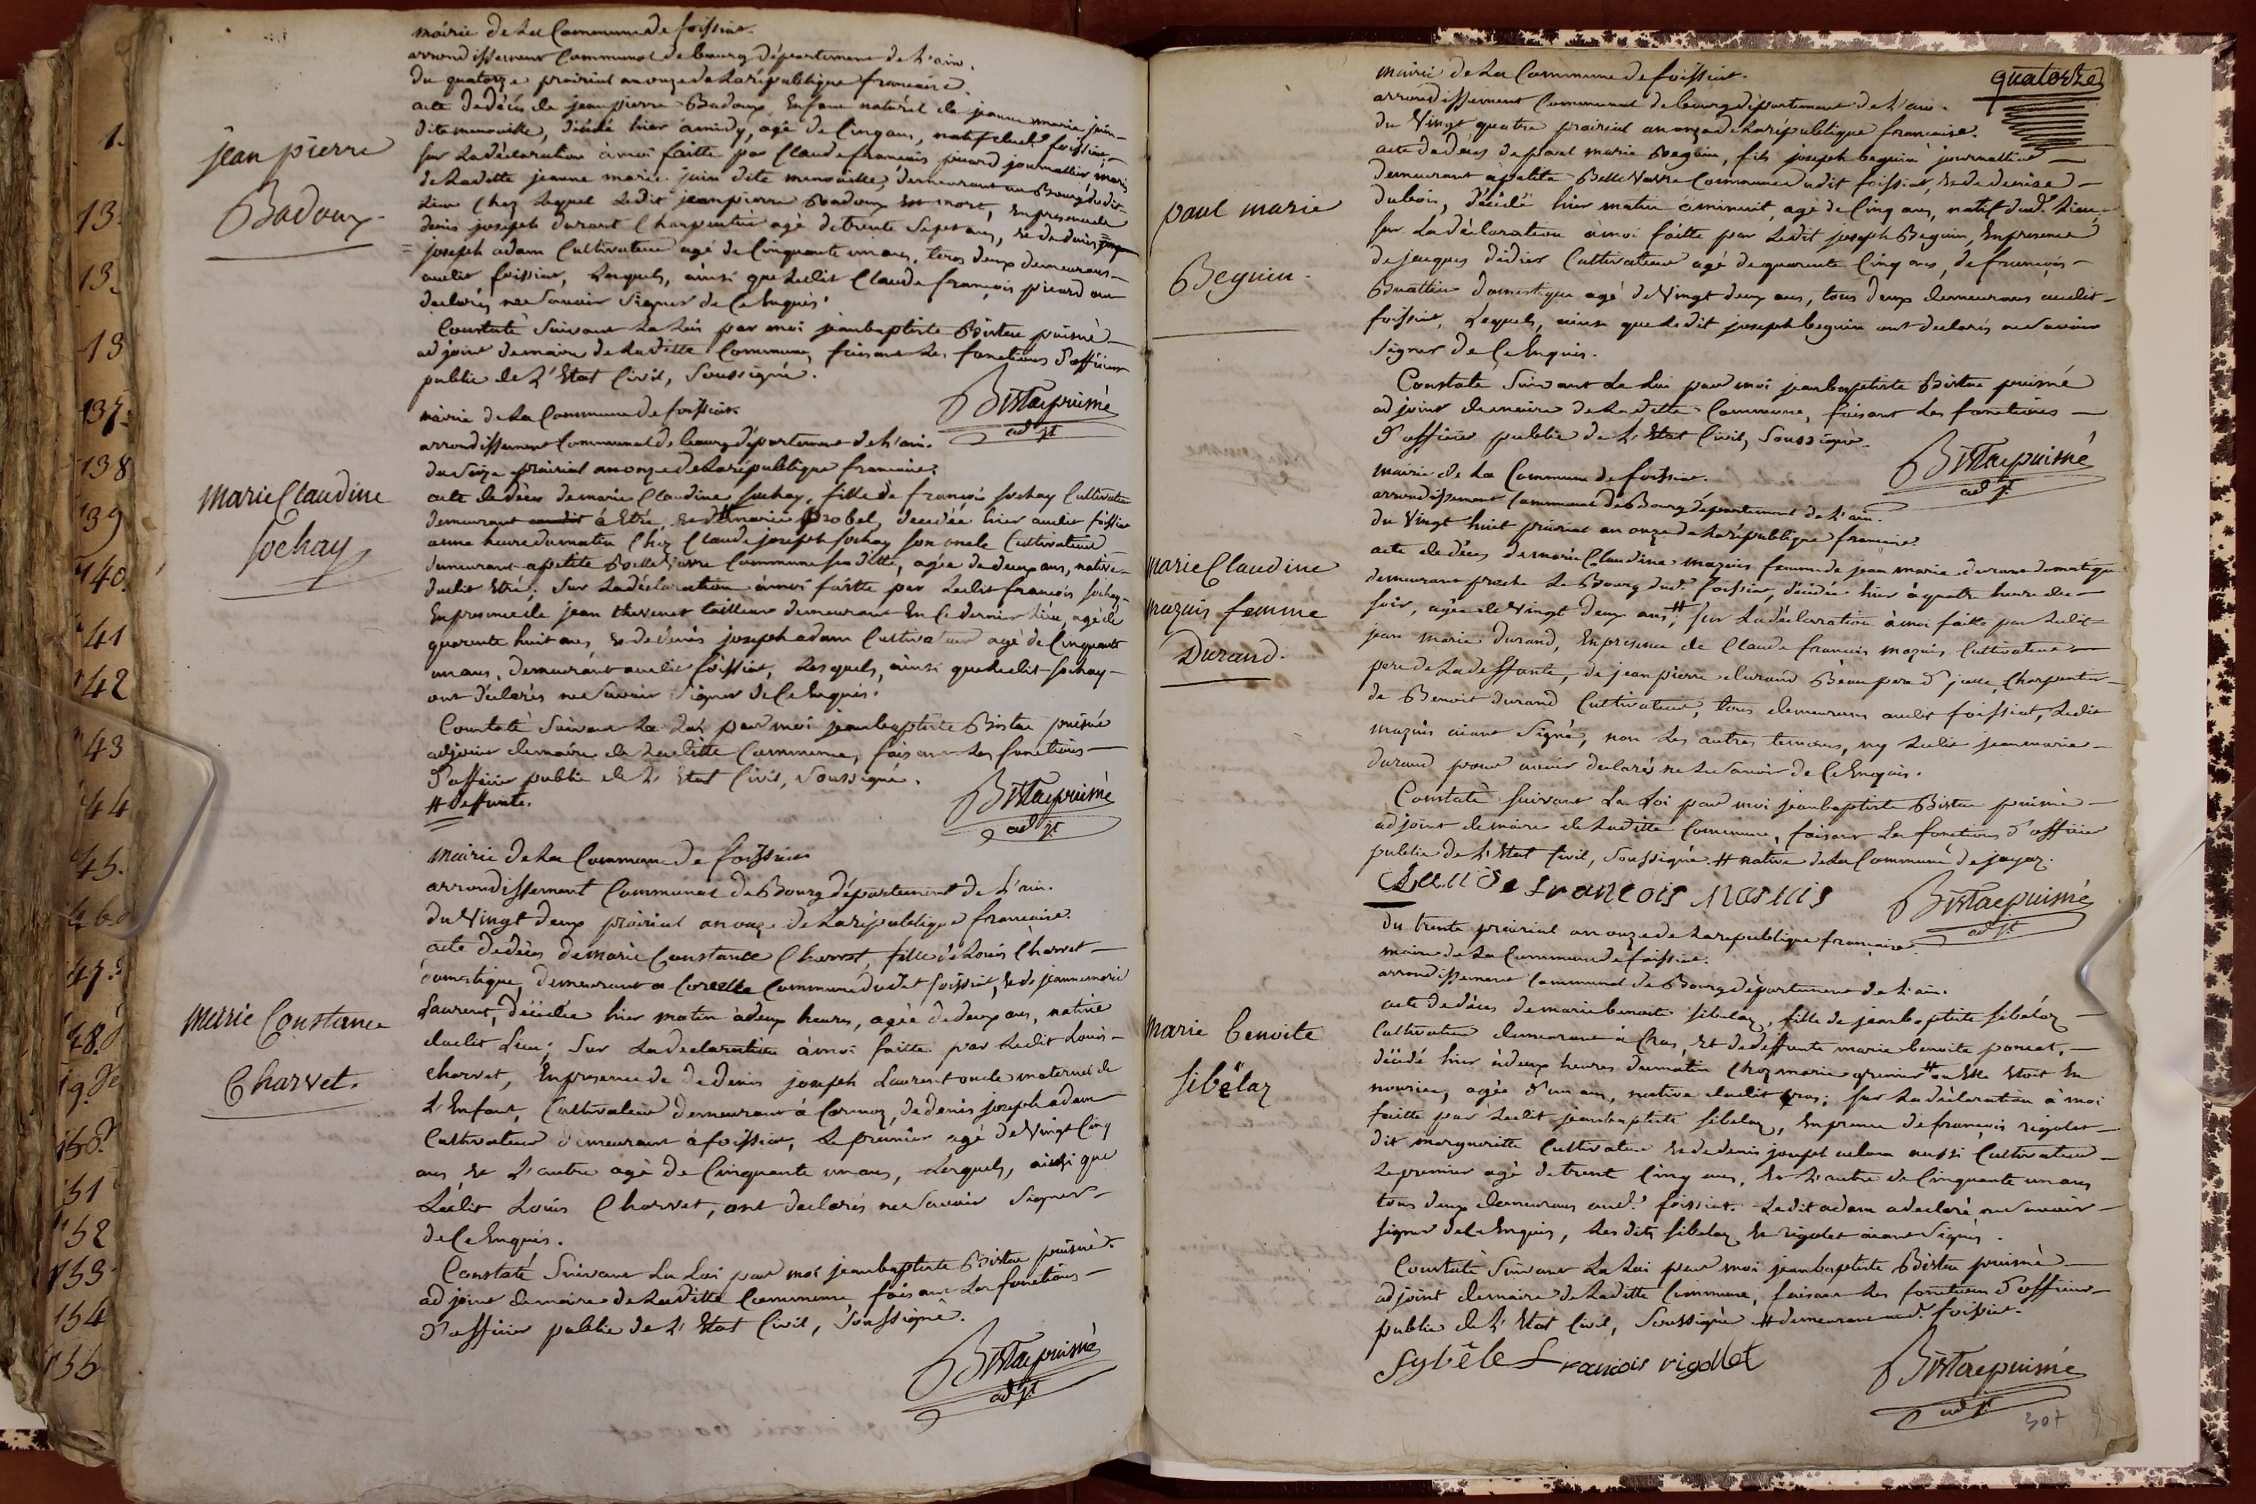 jean pierre
Badoux.
mairie de la Commune de foissiat.
arrondissement Communal de bourg département de L'ain.
du quatorze prairial an onze de la république francaise.
acte de décès de jean pierre Badoux Enfant naturel de jeanne marie juin
dite menouille, décédé hier à midy, agé de Cinq ans, natif dud. foissiat,
sur la déclaration à moi faitte par Claude francois picard journallier mari
de Laditte jeanne marie juin dite menouille, demeurant au Bourg dudit
Lieu Chez Lequel Ledit jean pierre Badoux Est mort, En presence de
denis joseph durant Charpentier agé de trente Sept ans, et de denis
joseph adam Cultivateur agé de Cinquante un ans, tous deux demeurans
audit foissiat, Lesquels, ainsi que Ledit Claude françois picard ont
déclarés ne Savoir Signer de Ce Enquis.
Constaté Suivant La Loi par moi jean baptiste Bistac puisné
adjoint de maire de Laditte Commune, faisant Les fonctions d'officier
public de L'Etat Civil, Soussigné.
Bistac puisné
adjt
Marie Claudine
Sochay
mairie de La Commune de foissiat.
arrondissement Communal de bourg département de L'ain.
du Seize prairial an onze de La république francaise.
acte de décès de marie Claudine Sochay, fille de francois Sochay Cultivateur
demeurant audit à Etré, et de # marie probel, decedée hier audit foissiat
a une heure du matin Chez Claude joseph Sochay Son oncle Cultivateur
demeurant a petite Belle Vavre Commune Susditte, agée de deux ans, native
dudit Etré; Sur La déclaration à moi faitte par Ledit francois Sochay
En presence de jean thevenet tailleur demeurant En Ce dernier Lieu, agé de
quarente huit ans, et de denis joseph adam Cultivateur agé de Cinquante
un ans, demeurant audit foissiat, Lesquels, ainsi que Ledit Sochay
ont déclarés ne Savoir Signer de Ce Enquis.
Constaté Suivant La Loi par moi jean baptiste Bistac puisné
adjoint de maire de Laditte Commune, faisant Les fonctions
d'officier public de L'Etat Civil, Soussigné.
# deffunte.
Bistac puisné
adjt
Marie Constance
Charvet.
mairie de La Commune de foissiat
arrondissement Communal de Bourg département de L'ain.
du Vingt deux prairial an onze de La république francaise.
acte de décès de marie Constance Charvet, fille de Louis Charvet
domestique, demeurant a Corcelle Commune dudit foissiat, et de jeanne marie
Laurent, décédée hier matin à deux heures, agée de deux ans, native
dudit Lieu; Sur La declaration à moi faitte par Ledit Louis
Charvet, En presence de de Denis joseph Laurent oncle maternel de
L'Enfant, Cultivateur demeurant à Cormoz, de denis joseph adam
Cultivateur demeurant à foissiat, Le premier agé de Vingt Cinq
ans et L'autre agé de Cinquante un ans, Lesquels, ainsi que
Ledit Louis Charvet, ont déclarés ne Savoir Signer
de Ce Enquis.
Constaté Suivant La Loi par moi jean baptiste Bistac puisné
adjoint de maire de Laditte Commune faisant Les fonctions
d'officier public de L'Etat Civil, Soussigné.
Bistac puisné
adjt
quatorze
paul marie
Beguin.
mairie de La Commune de foissiat.
arrondissement Communal de bourg département de L'ain.
du Vingt quatre prairial an onze de La république francaise.
acte de décès de paul marie Beguin, fils joseph beguin journallier
demeurant à petite Belle Vavre Commune dudit foissiat, et de denise
dubois, décédé hier matin a minuit, agé de Cinq ans, natif dud. Lieu,
Sur La déclaration a moi faitte par Ledit joseph Beguin, En presence
de jacques didier Cultivateur agé de quarente Cinq ans, de francois
Buattier domestique agé de Vingt deux ans, tous deux demeurans audit
foissiat, Lesquels, ainsi que Ledit joseph beguin ont déclarés ne Savoir
Signer de Ce Enquis.
Constaté Suivant La Loi par moi jean baptiste Bistac puisné
adjoint de maire de Laditte Commune, faisant Les fonctions
d'officier public de L'Etat Civil, Soussigné.
Bistac puisné
adjt
marie Claudine
mazuis femme
Durand.
mairie de La Commune de foissiat.
arrondissement Communal de Bourg département de L'ain.
du Vingt huit prairial an onze de La république francaise.
acte de décès de marie Claudine mazuis femme de jean marie durand domestique
demeurant proche Le Bourg dud. foissiat, décédée hier à quatre heures du
soir, agée de Vingt deux ans #; Sur La déclaration à moi faitte par Ledit
jean marie durand, En presence de Claude francois mazuis Cultivateur
pere de La deffunte, de jean pierre durand Beau pere d'icelle, Charpentier
de Benoit durand Cultivateur, tous demeurans audit foissiat, Ledit
mazuis aiant Signé, non Les autres temoins, ny Ledit jean marie
durand pour avoir declaré ne Le Savoir de Ce Enquis.
Constaté Suivant La Loi par moi jean baptiste Bistac puisné
adjoint de maire de Laditte Commune, faisant Les fonctions d'officier
public de L'Etat Civil, Soussigné. # native de La Commune de jayaz.
Claude francois Masuis
Bistac puisné
adjt
Marie benoite
Sibëlaz
du trente prairial an onze de La republique française.
mairie de La Commune de foissiat.
arrondissement Communal de Bourg département de L'ain.
acte de décès de marie benoite Sibelaz, fille de jean baptiste Sibélaz
Cultivateur demeurant à Cras, Et de deffunte marie benoite poncet,
décédé hier à deux heures du matin Chez marie grenier # ou Elle Etoit En
nourice, agée d'un an, native dudit Cras; Sur La déclaration à moi
faitte par Ledit jean baptiste Sibelaz, En presence de françois rigolet
dit margueritte Cultivateur et de denis joseph adam aussi Cultivateur
Le premier agé de trent Cinq ans, Et L'autre de Cinquante un ans
tous deux demeurans aud. foissiat. Ledit adam a declaré ne Savoir
Signer de Ce Enquis, Les dits Sibelaz Et rigolet aiant Signés.
Constaté Suivant La Loi par moi jean baptiste Bistac puisné
adjoint de maire de Laditte Commune, faisant Les fonctions d'officier
public de L'Etat Civil, Soussigné # demeurant aud. foissiat.
Sybêle francois rigollet
Bistac puisné
adjt
307